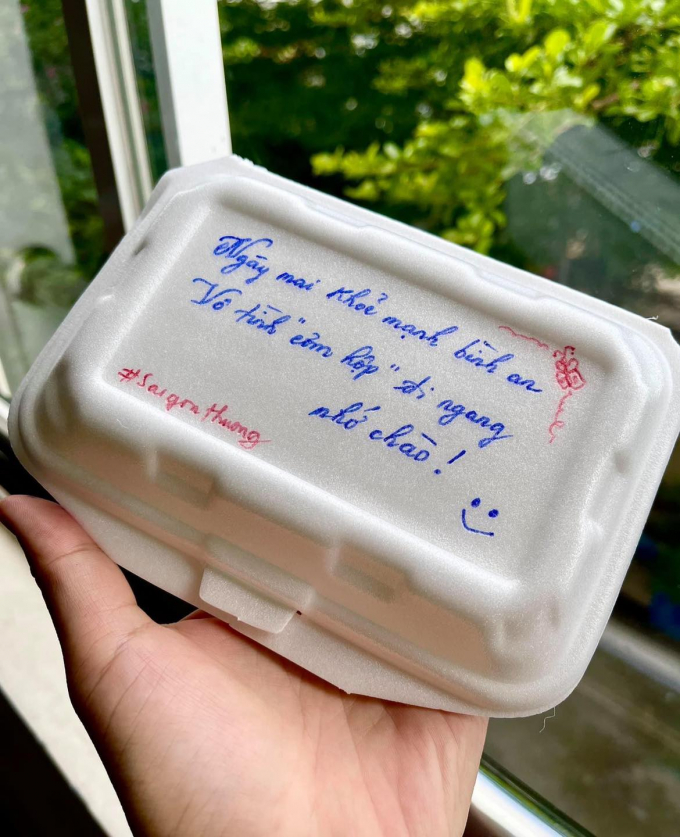 Ngày mai khỏe mạnh bình an
Vô tình "cơm hộp" đi ngang
nhớ chào!
#Saigonthương